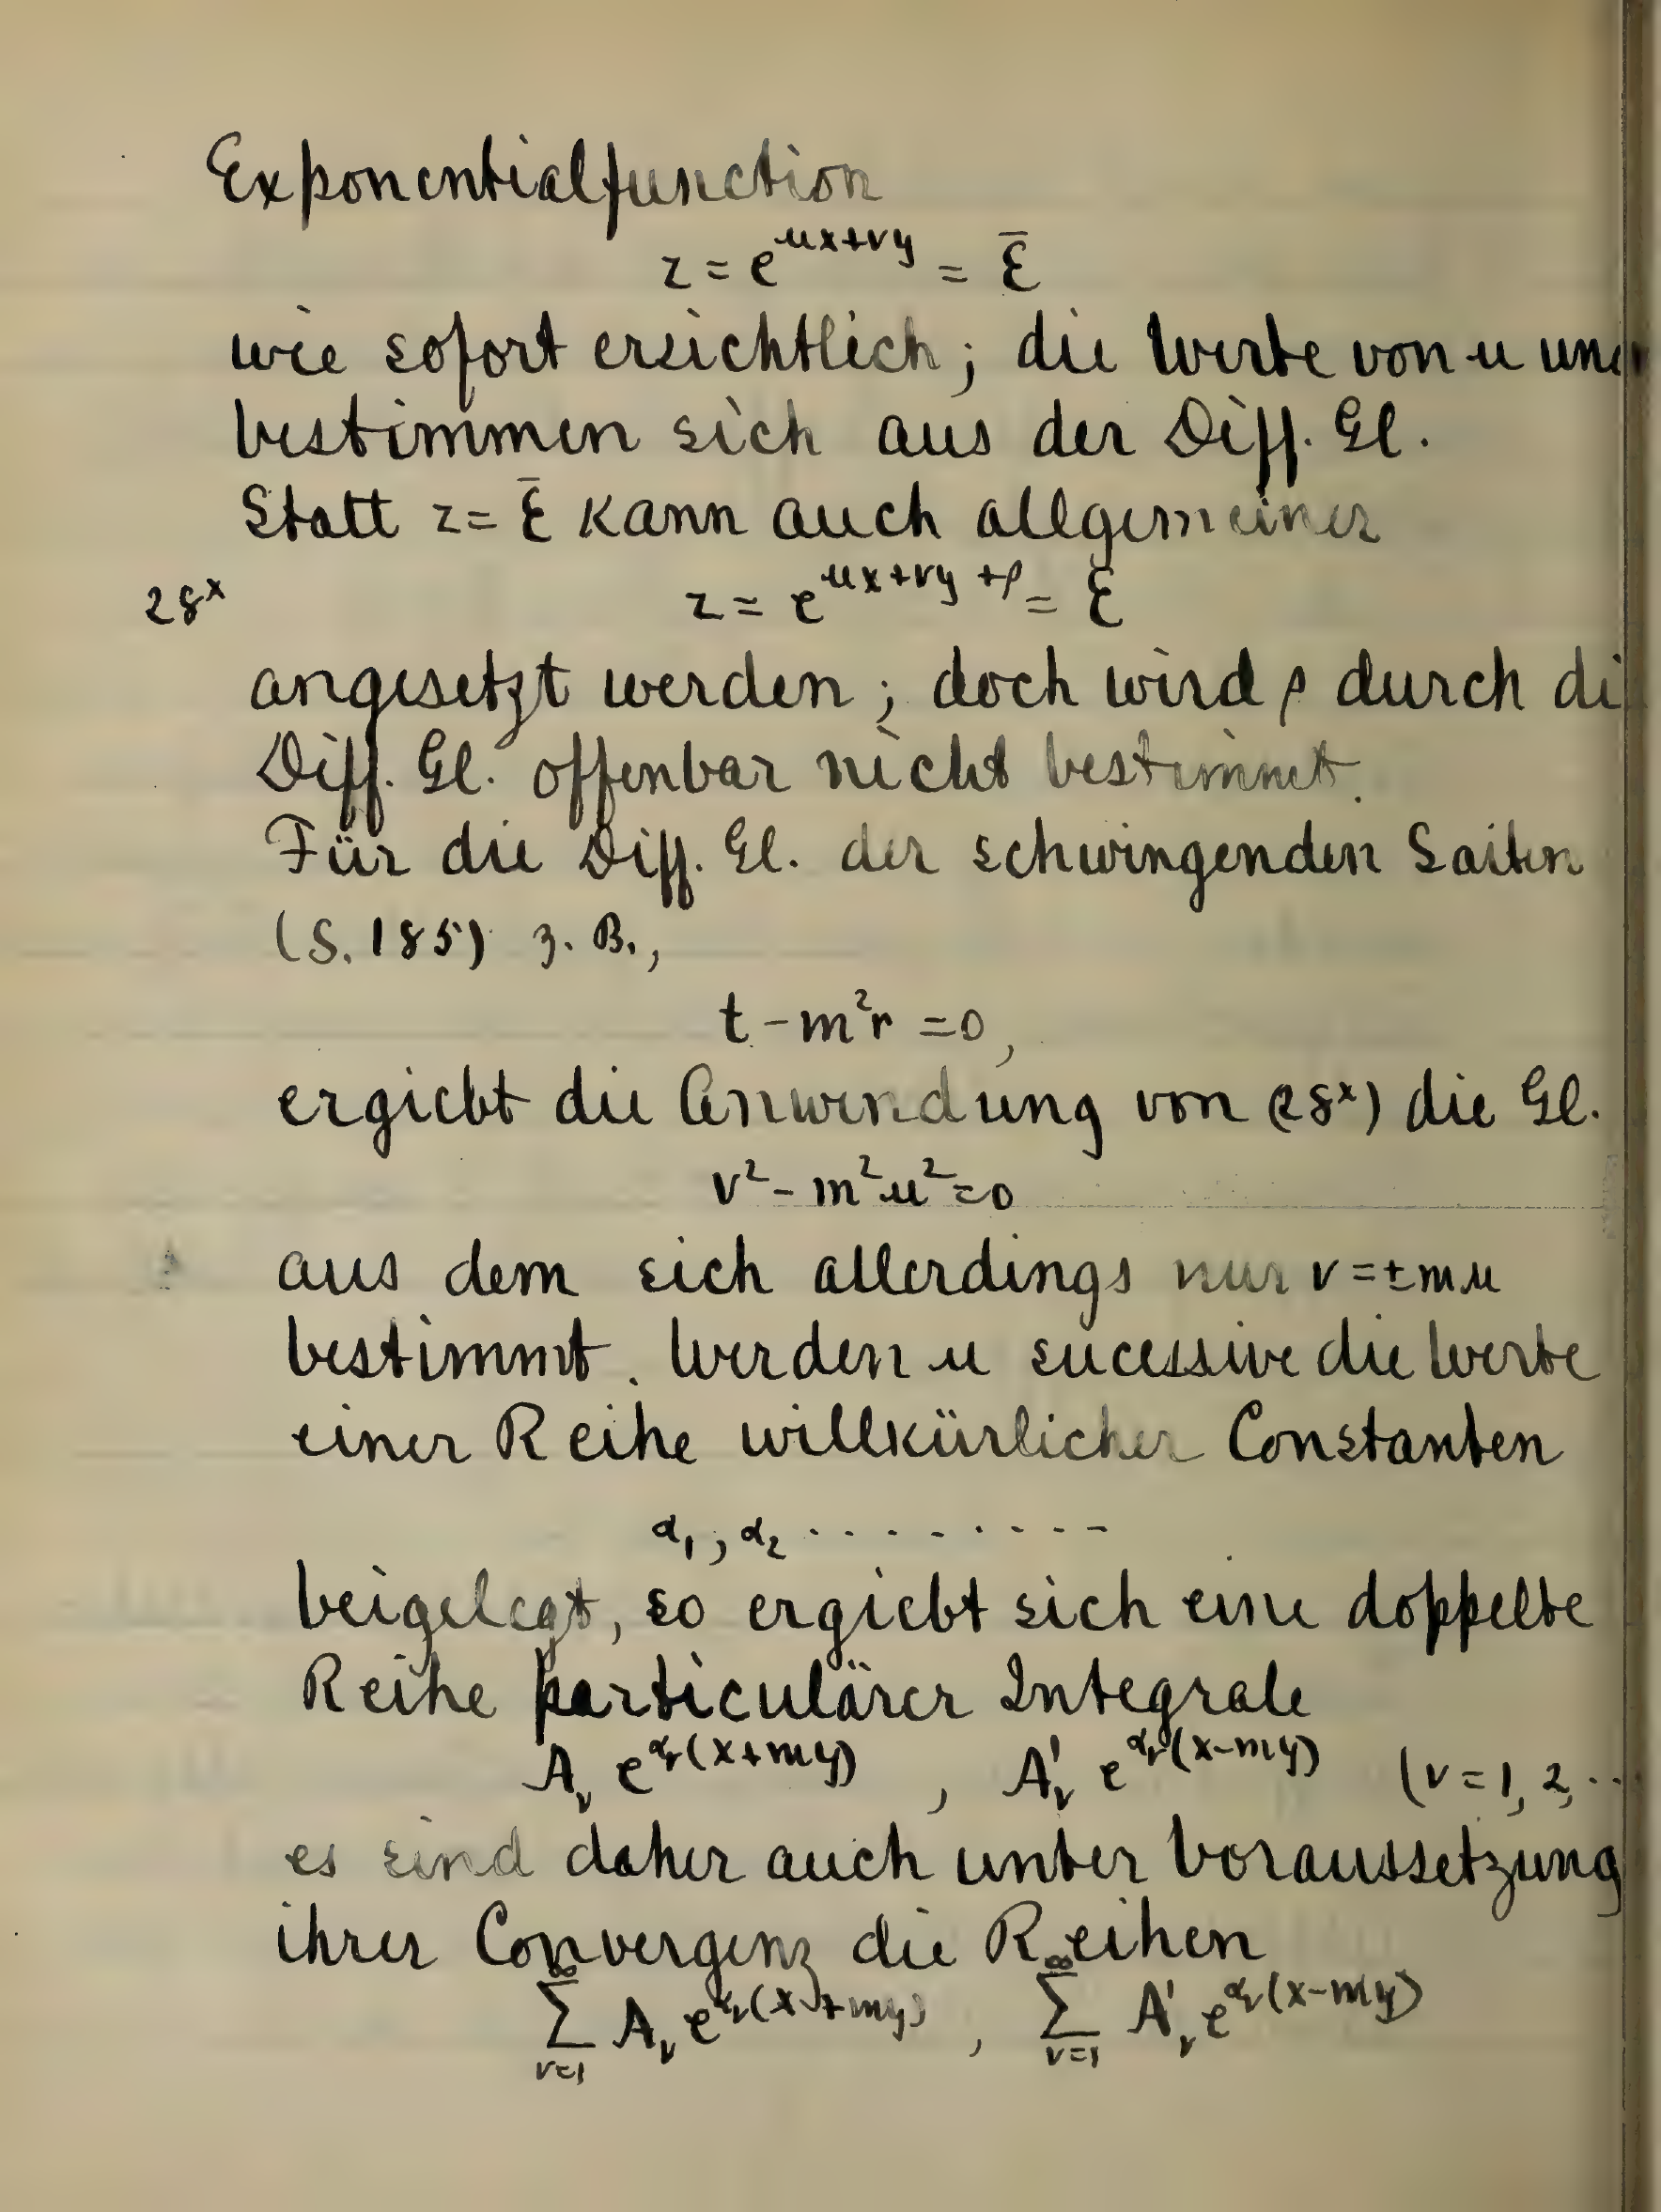 Exponentialfunction
z = e^{ux+vy} = Ē
wie sofort ersichtlich; die Werte von u und
bestimmen sich aus der Diff. Gl.
Statt z = Ē kann auch allgemeiner
28^x z = e^{ux+vy+ρ} = E
angesetzt werden; doch wird ρ durch di
Diff. Gl. offenbar nicht bestimmt.
Für die Diff. Gl. der schwingenden Saiten
(S. 185) z. B.,
t - m²r = 0,
ergiebt die Anwendung von (28^x) die Gl.
v² - m²u² = 0
aus dem sich allerdings nur v = ± mu
bestimmt. Werden u sucessive die Werte
einer Reihe willkürlicher Constanten
α₁, α₂ . . . . . . . . .
beigelegt, so ergiebt sich eine doppelte
Reihe particulärer Integrale
A_ν e^{α_ν(x+my)} , A'_ν e^{α_ν(x-my)} (ν = 1, 2, ..
es sind daher auch unter Voraussetzung
ihrer Convergenz die Reihen
∑_{ν=1}^{∞} A_ν e^{α_ν(x+my)} , ∑_{ν=1}^{∞} A'_ν e^{α_ν(x-my)}